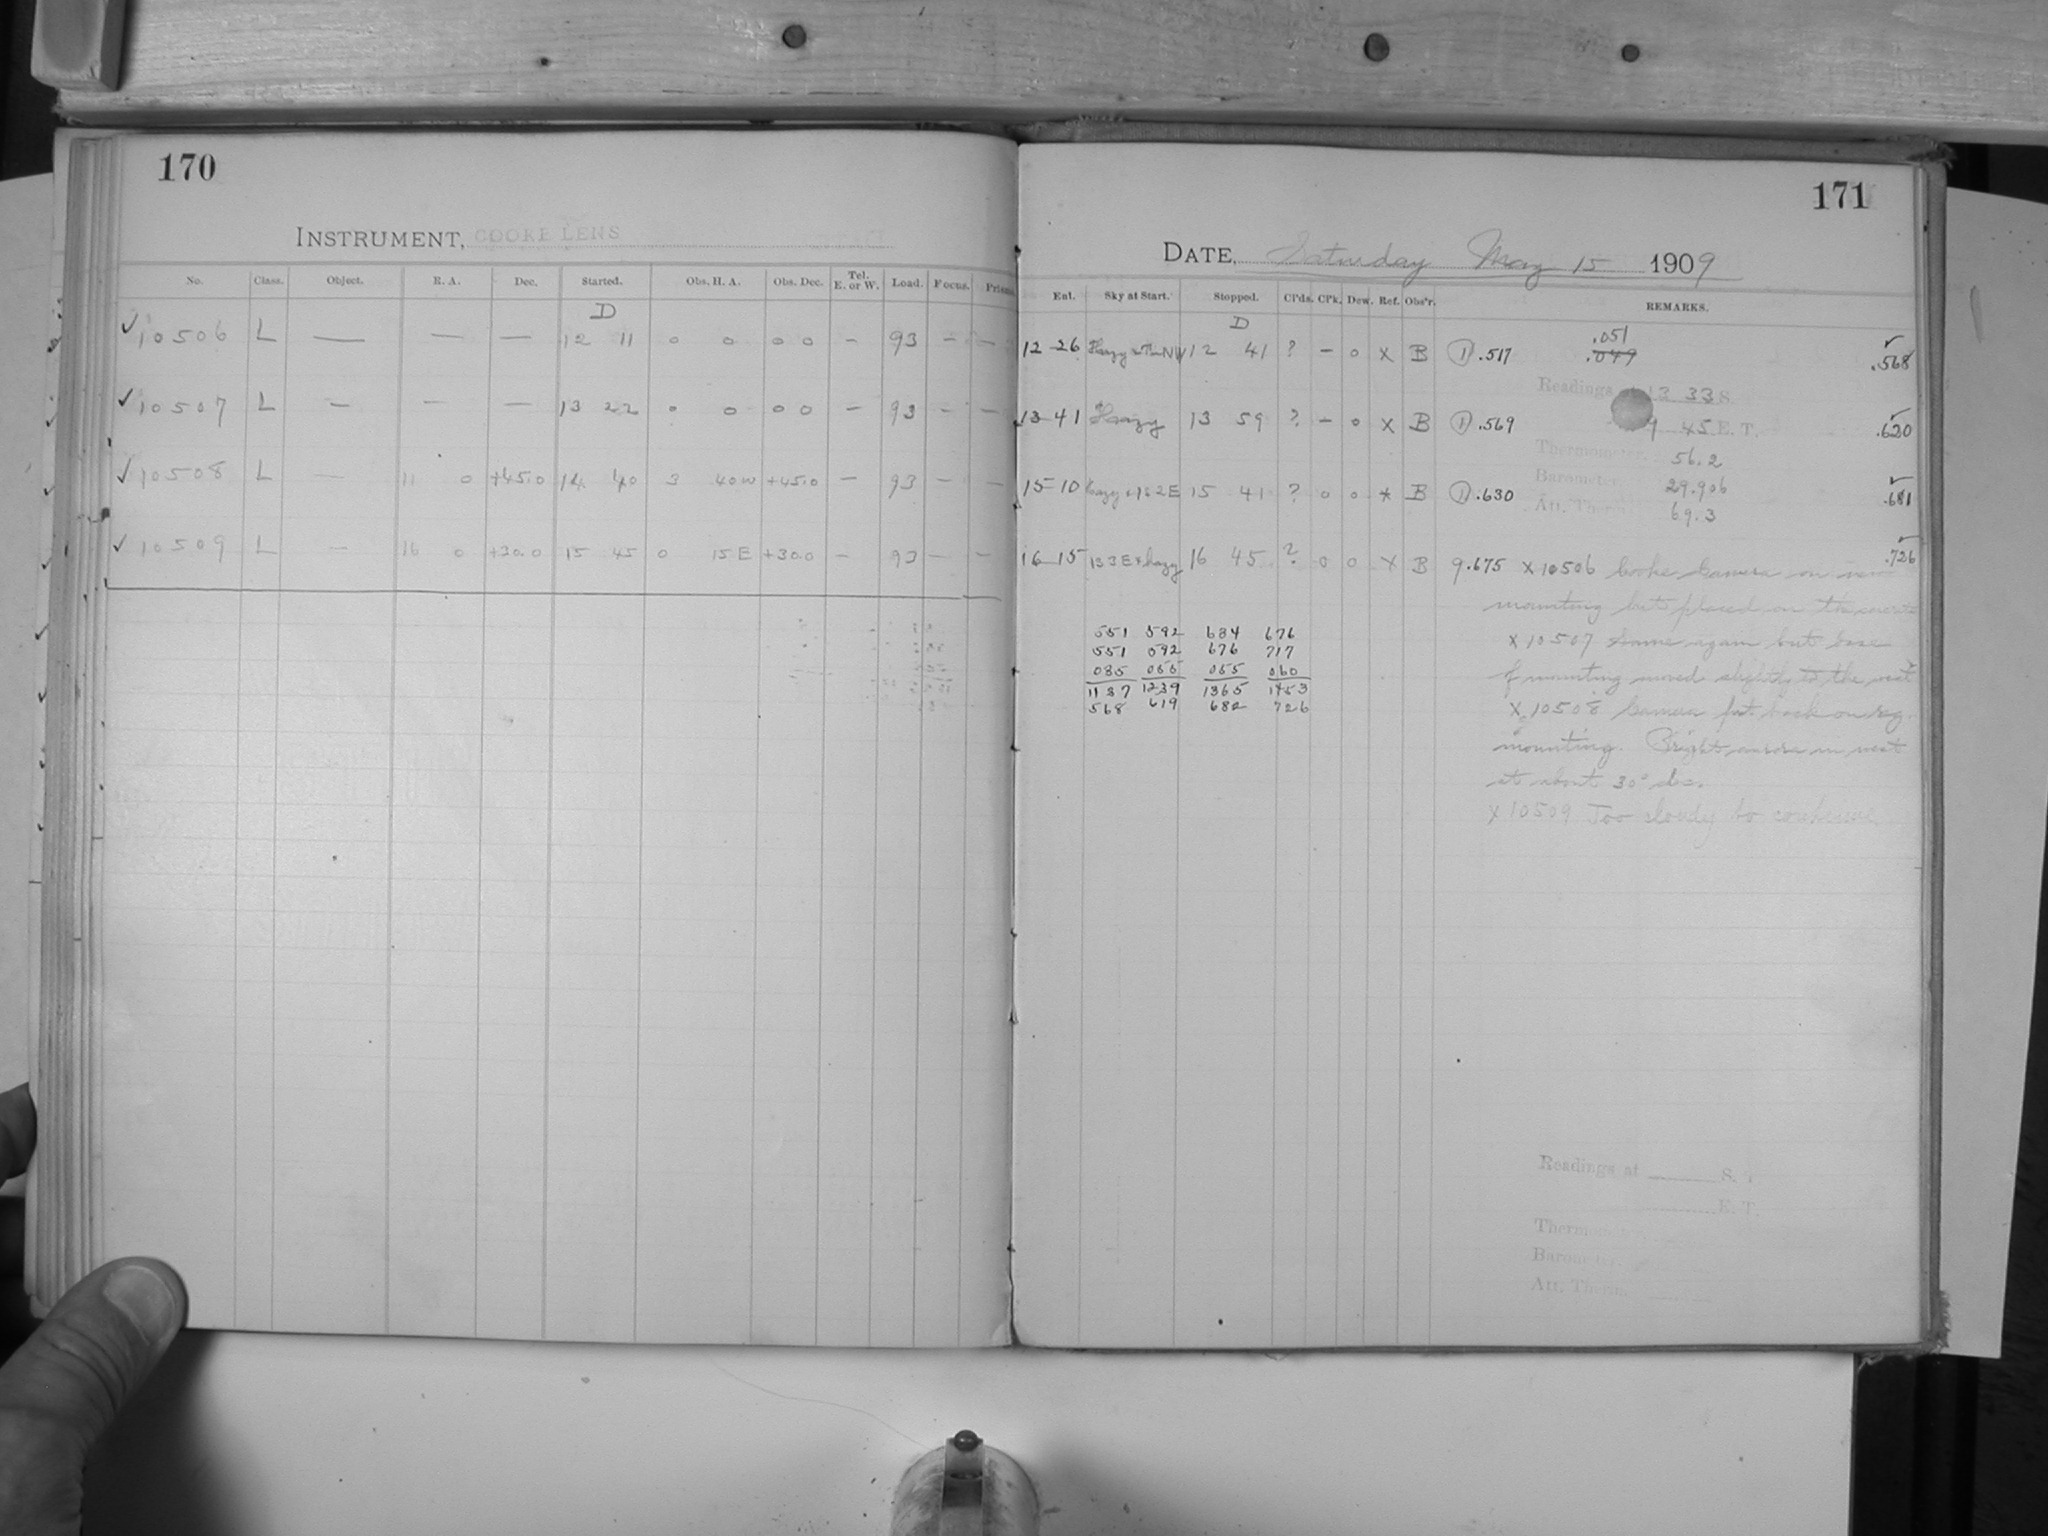 170
INSTRUMENT, COOKE LENS
No. Class. Object. R. A. Dec. Started. Obs. H. A. Obs. Dec. Tel. E. or W. Load. Focus.
D
✓ 10506 L — — — 12 11 0 0 0 0 – 93 – –
✓ 10507 L — — — 13 22 0 0 0 0 – 93 – –
✓ 10508 L — 11 0 +45.0 14 40 3 40 W +45.0 – 93 – –
✓ 10509 L — 16 0 +30.0 15 45 0 15 E +30.0 – 93 – –
171
DATE, Saturday May 15 1909
Ent. Sky at Start. Stopped. Cl'ds. Cl'k. Dew. Ref. Obs'r. REMARKS.
D
12 26 Hazy NW 12 41 ? – 0 X B 1 .517 .051 .049 ✓ .568
Readings 13 33 S.
13 41 Hazy 13 59 ? – 0 X B 1 .569 9 45 E. T. ✓ .620
Thermometer, 56.2
15 10 Hazy + 1 S 2 E 15 41 ? 0 0 X B 1 .630 Barometer, 29.906 ✓ .681
Att. Therm. 69.3
16 15 1 S 3 E + hazy 16 45 ? 0 0 X B 9.675 X 10506 Cooke Camera on new ✓ .726
mounting but placed on the
X 10507 Same again but base
of mounting moved slightly to the west
X 10508 Camera put back on reg.
mounting. Bright aurora in west
at about 30° dec.
X 10509 Too cloudy to continue
551 592 634 676
551 592 676 717
035 055 055 060
1137 1239 1365 1453
568 619 682 726
Readings at S. T.
E. T.
Thermometer,
Barometer,
Att. Therm.